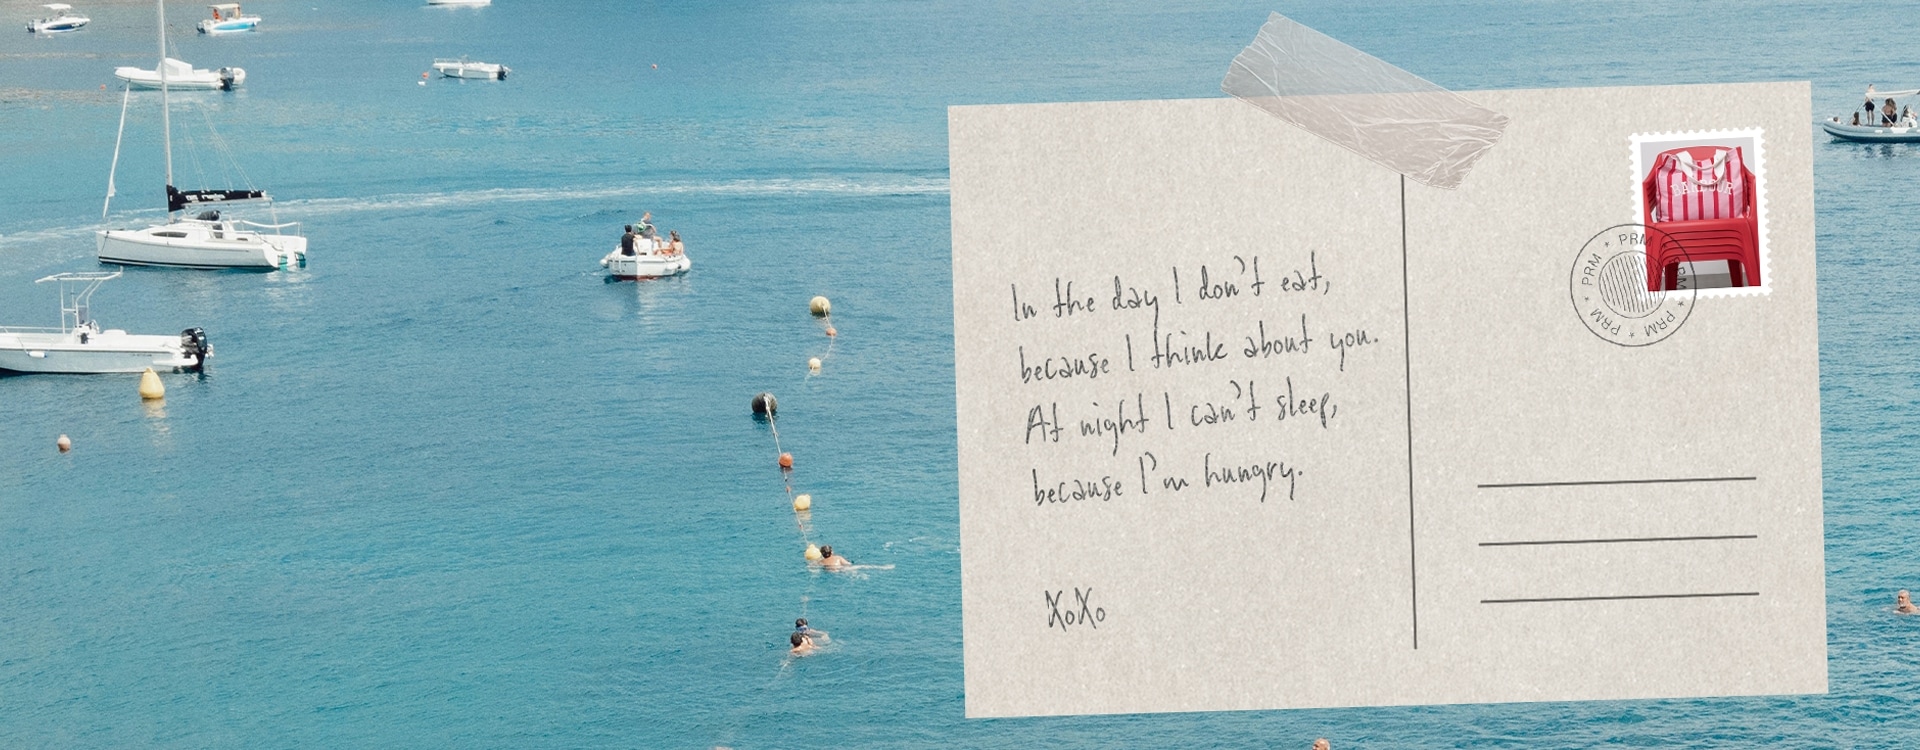 In the day I don't eat,
because I think about you.
At night I can't sleep,
because I'm hungry.
XoXo
BARBOUR
PRM * PRM * PRM * PRM * PRM *